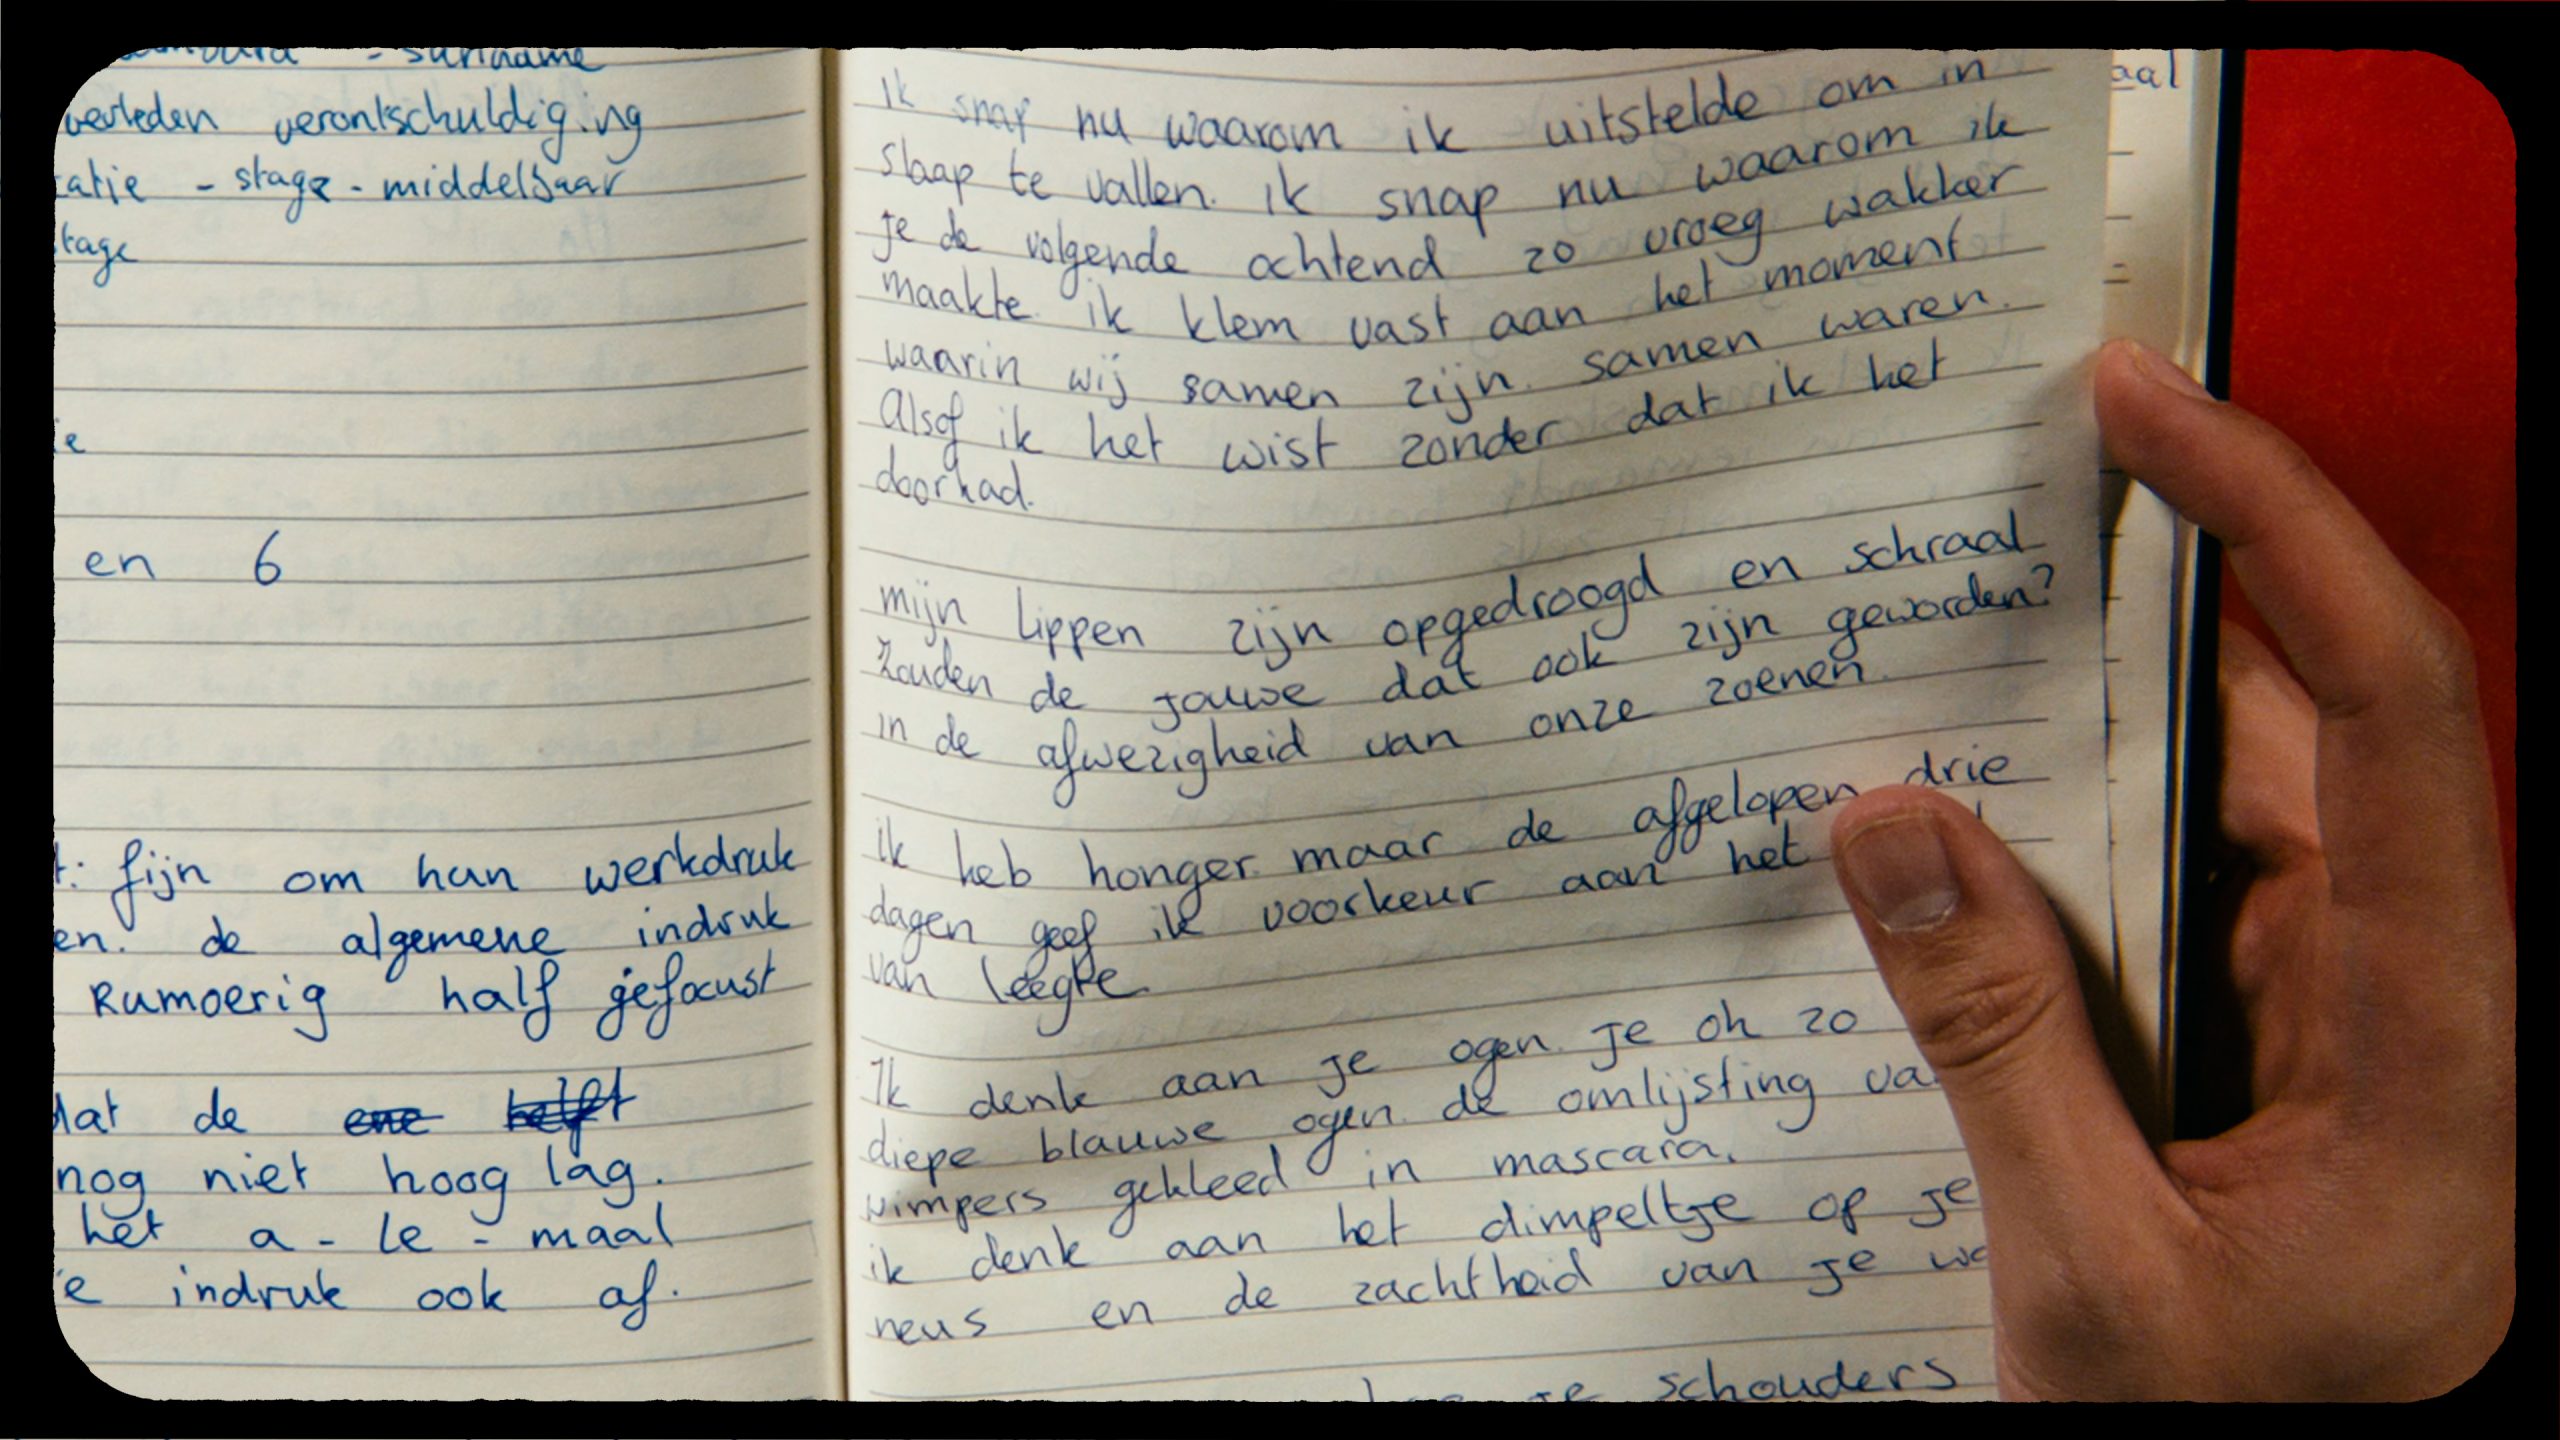 - suriname
verleden verontschuldiging
- stage - middelbaar
stage
en 6
fijn om hun werkdruk
en. de algemene indruk
Rumoerig half gefocust
dat de ene helft
nog niet hoog lag.
het a - le - maal
indruk ook af.
ik snap nu waarom ik uitstelde om in
slaap te vallen. ik snap nu waarom ik
je de volgende ochtend zo vroeg wakker
maakte. ik klem vast aan het moment
waarin wij samen zijn. samen waren.
Alsof ik het wist zonder dat ik het
doorhad.
mijn lippen zijn opgedroogd en schraal
Zouden de jouwe dat ook zijn geworden?
in de afwezigheid van onze zoenen.
ik heb honger. maar de afgelopen drie
dagen geef ik voorkeur aan het
van leegte.
Ik denk aan je ogen. Je oh zo
diepe blauwe ogen. de omlijsting va
wimpers gekleed in mascara.
ik denk aan het dimpeltje op je
neus en de zachtheid van je wa
je schouders
aal